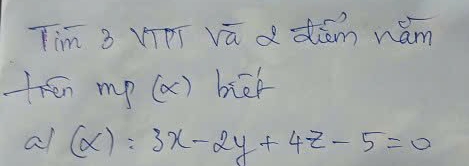 Tìm 3 VTPT và 2 điểm nằm
trên mp (α) biết
a/ (α) : 3x - 2y + 4z - 5 = 0